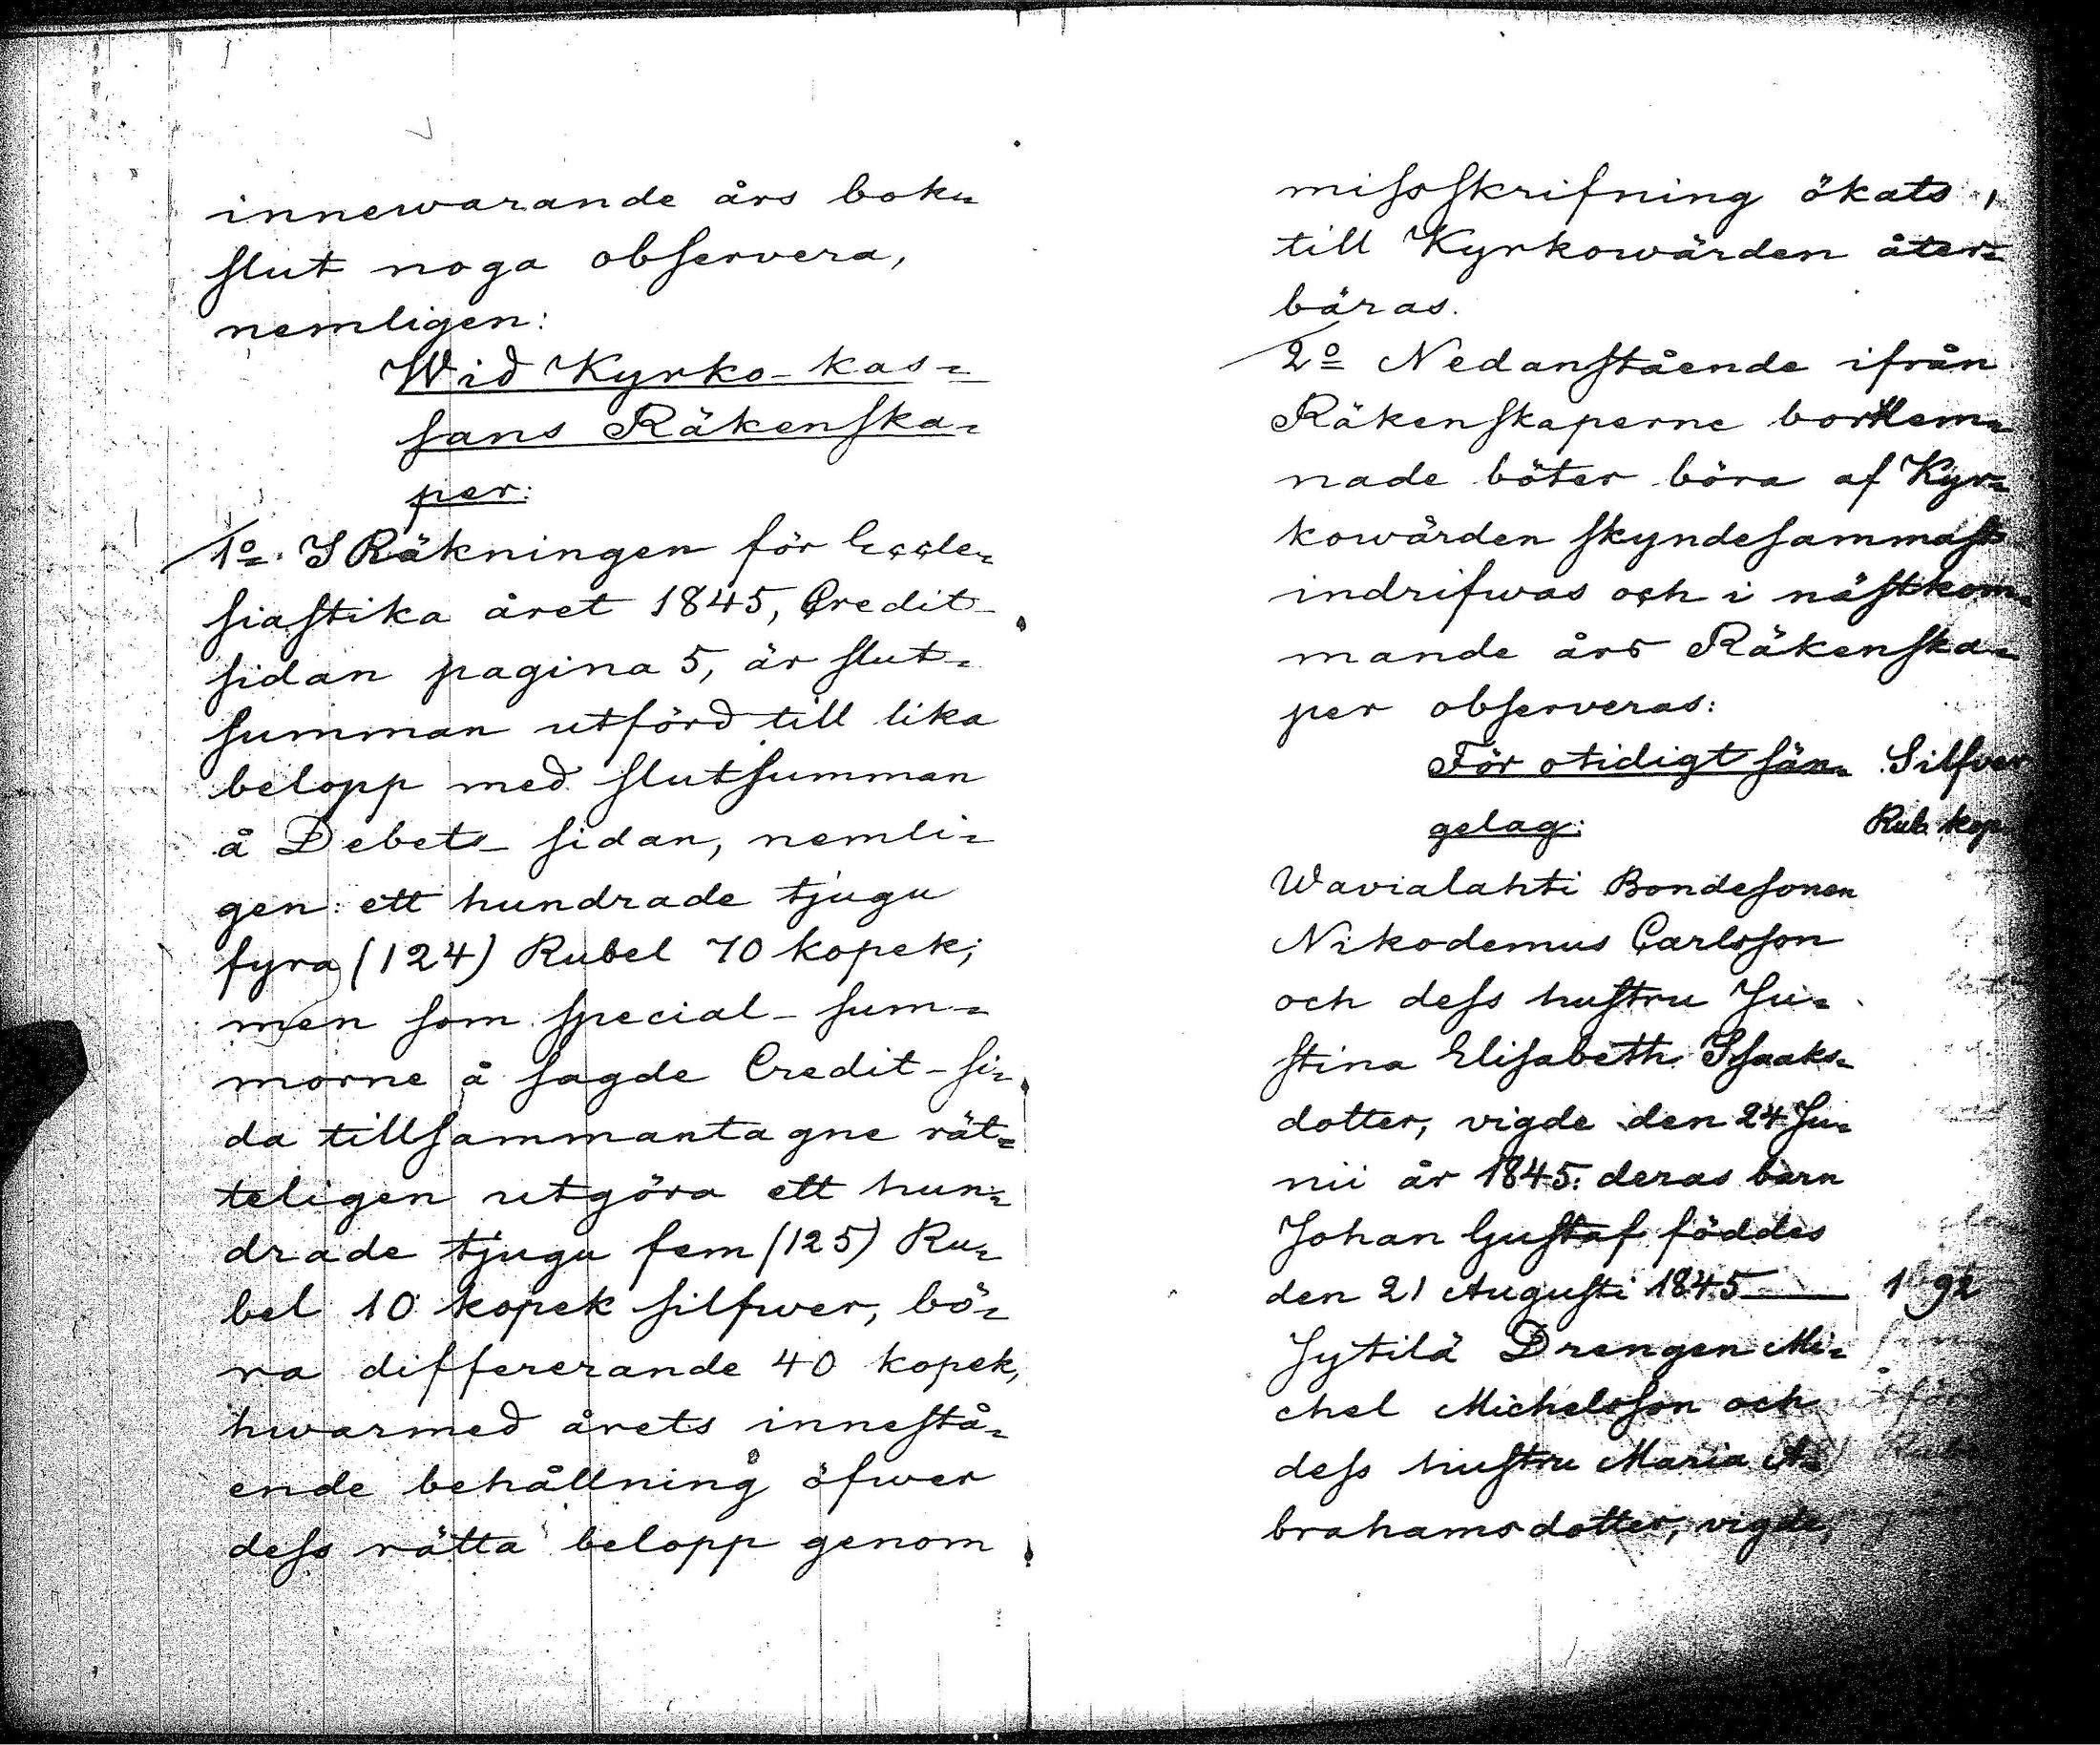 innewarande års bok=
slut noga observera,
nemligen:
Wid Kyrko-kas=
sans Räkenska=
per:
1o. I Räkningen för Eccle=
siastika året 1845, Credit-
sidan pagina 5, är slut=
summan utförd till lika
belopp med slutsumman
å Debet-sidan, nemli=
gen: ett hundrade tjugu
fyra (124) Rubel 70 kopek;
men som special-sum=
morne å sagde Credit-si=
da tillsammantagne rät=
teligen utgöra ett hun=
drade tjugu fem (125) Ru=
bel 10 kopek silfwer, bö=
ra differerande 40 kopek,
hwarmed årets innestå=
ende behållning öfwer
dess rätta belopp genom
missskrifning ökats,
till Kyrkowärden åter=
bäras.
2o Nedanstående ifrån
Räkenskaperne bortlem=
nade böter böra af Kyr=
kowärden skyndesammast
indrifwas och i nästkom=
mande års Räkenska=
per observeras:
För otidigt sän= Silfver
gelag: Rub. kop.
Wavialahti Bondesonen
Nikodemus Carlsson
och dess hustru Ju=
stina Elisabeth Isaaks=
dotter, vigde den 24 Ju=
nii år 1845: deras barn
Johan Gustaf föddes
den 21 Augusti 1845 — 1 92
Jytilä Drengen Mi=
chel Michelsson och
dess hustru Maria A=
brahamsdotter, vigde,